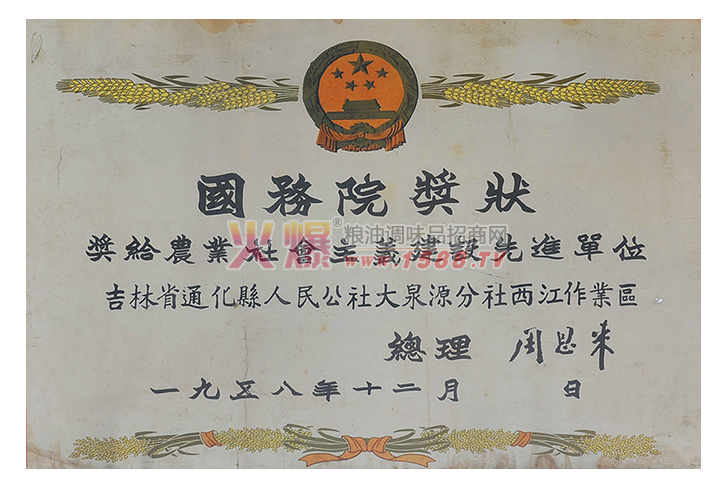 國務院奬狀
奬給農業社會主義建設先進單位
火爆®粮油调味品招商网
www.1588.TV
吉林省通化縣人民公社大泉源分社西江作業區
總理 周恩来
一九五八年十二月 日